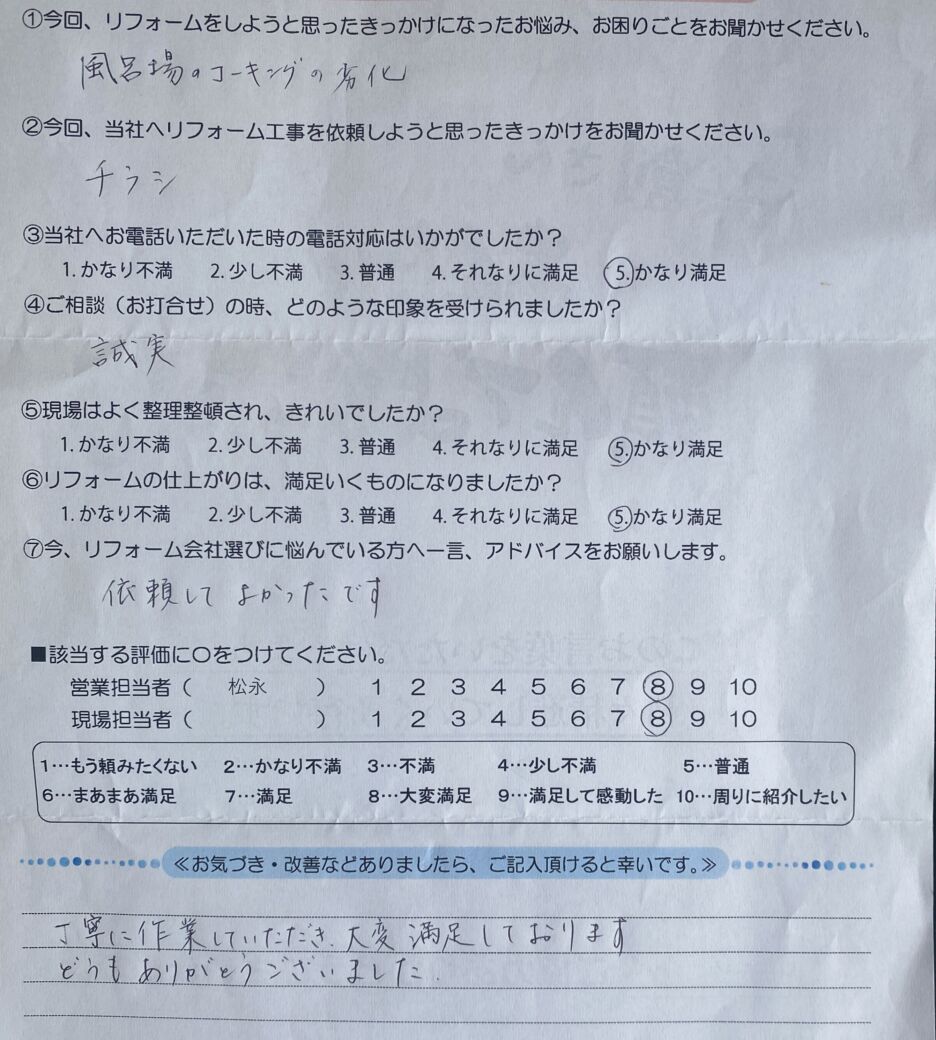 ①今回、リフォームをしようと思ったきっかけになったお悩み、お困りごとをお聞かせください。
風呂場のコーキングの劣化
②今回、当社へリフォーム工事を依頼しようと思ったきっかけをお聞かせください。
チラシ
③当社へお電話いただいた時の電話対応はいかがでしたか？
1.かなり不満 2.少し不満 3.普通 4.それなりに満足 5.かなり満足
④ご相談（お打合せ）の時、どのような印象を受けられましたか？
誠実
⑤現場はよく整理整頓され、きれいでしたか？
1.かなり不満 2.少し不満 3.普通 4.それなりに満足 5.かなり満足
⑥リフォームの仕上がりは、満足いくものになりましたか？
1.かなり不満 2.少し不満 3.普通 4.それなりに満足 5.かなり満足
⑦今、リフォーム会社選びに悩んでいる方へ一言、アドバイスをお願いします。
依頼して よかったです
■該当する評価に〇をつけてください。
営業担当者（ 松永 ） 1 2 3 4 5 6 7 8 9 10
現場担当者（ ） 1 2 3 4 5 6 7 8 9 10
1…もう頼みたくない 2…かなり不満 3…不満 4…少し不満 5…普通
6…まあまあ満足 7…満足 8…大変満足 9…満足して感動した 10…周りに紹介したい
≪お気づき・改善などありましたら、ご記入頂けると幸いです。≫
丁寧に作業していただき、大変満足しております
どうもありがとうございました.